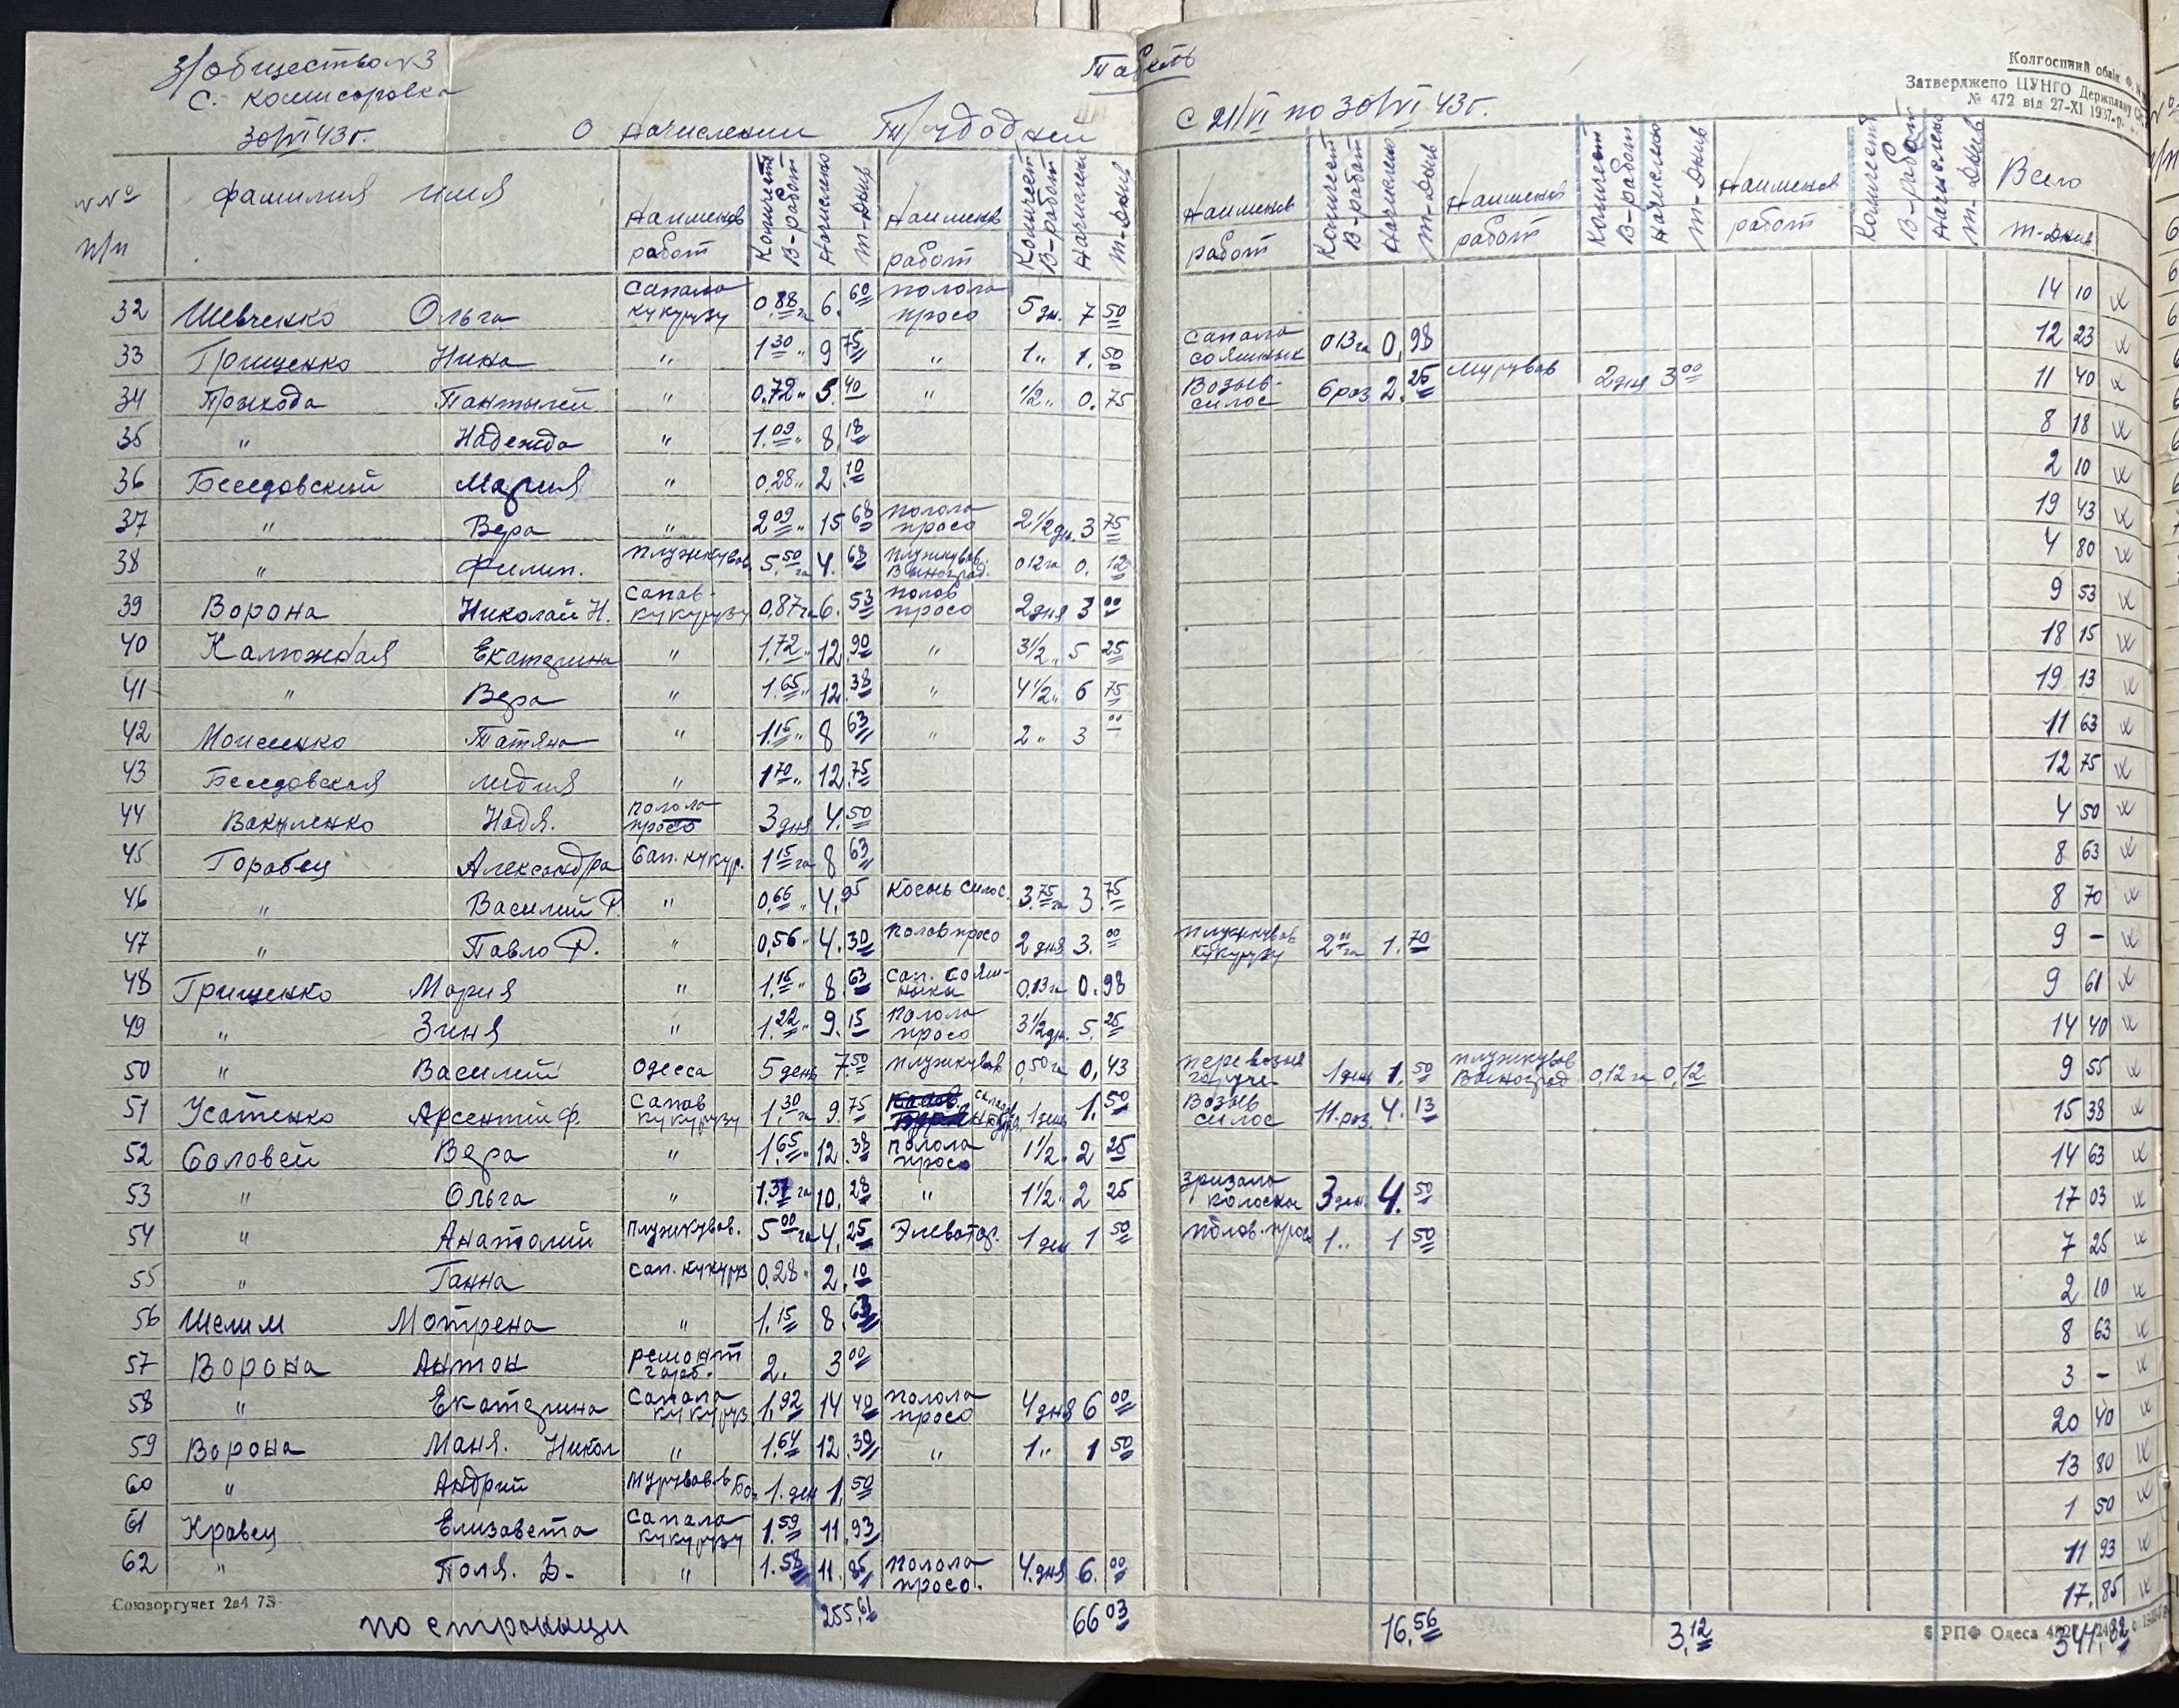 З/общество №3
с. Комисаровка
30/VI 43г.
Табель
о начислении Трудодней
с 21/VI по 30/VI 43г.
Колгоспний облік
Затверджено ЦУНГО Держплану
№ 472 від 27-XI 1937 р.
№№ п/п фамилия имя Наименов работ Количест В-работ Начислено т-дней Наименов работ Количест В-работ Начислено т-дней Наименов работ Количест В-работ Начислено т-дней Наименов работ Количест В-работ Начислено т-дней Наименов работ Количест В-работ Начислено т-дней Всего т-дней
32 Шевченко Ольга сапала кукурузу 0,88 га 6.60 полола просо 5 дн. 7 50 14 10
33 Грищенко Нина " 1 30 " 9 75 " 1 " 1.50 сапала соянных 013 га 0,98 12 23
34 Прихода Пантылей " 0.72 " 5.40 " 1/2 " 0.75 Возыв- силос 6 раз 2.25 Мурував 2 дня 3 00 11 40
35 " Надежда " 1.09 " 8.18 8 18
36 Беседовский Мария " 0,28 " 2.10 2 10
37 " Вера " 2 09 " 15 68 полола просо 2 1/2 дн. 3 75 19 43
38 " Филип. плужкував 5.50 га 4.68 плужкував виноград. 012 га 0.12 4 80
39 Ворона Николай Н. сапав- кукурузу 0,87 га 6.53 полов просо 2 дня 3 00 9 53
40 Калюжная Екатерина " 1.72 " 12.90 " 3 1/2 " 5 25 18 15
41 " Вера " 1.65 " 12.38 " 4 1/2 " 6 75 19 13
42 Моисенко Татяна " 1.15 " 8 63 " 2 " 3 00 11 63
43 Беседовская Лидия " 1 70 " 12.75 12 75
44 Вакуленко Надя. полола просо 3 дня 4.50 4 50
45 Горобец Александра Сап. кукур. 1 15 га 8 63 8 63
46 " Василий Р. " 0,66 " 4.95 косыв силос. 3.75 га 3.75 8 70
47 " Павло Р. " 0,56 " 4.30 полов просо 2 дня 3.00 плужкував кукурузу 2 га 1.70 9 -
48 Грищенко Мария " 1.15 " 8.63 сап. соян- ныки 0,13 га 0.98 9 61
49 " Зина " 1.22 " 9.15 полола просо 3 1/2 дн. 5.25 14 40
50 " Василий Одесса 5 день 7.50 плужкував 0,50 га 0,43 перевозыв 1 день 1.50 плужкував виноград 0,12 га 0,12 9 55
51 Усатенко Арсентий Ф. сапав кукурузу 1.30 га 9.75 1 день 1.50 Возыв силос 11 раз. 4.13 15 38
52 Соловей Вера " 1.65 " 12.38 полола просо 1 1/2 " 2 25 14 63
53 " Ольга " 1.37 га 10.28 " 1 1/2 " 2 25 Зризала колоски 3 дня 4.50 17 03
54 " Анатолий плужкував. 5 00 га 4.25 Элеватор. 1 ден 1 50 полов. просо 1 " 1 50 7 25
55 " Ганна сап. кукуруз 0.28 " 2.10 2 10
56 Шелим Мотрена " 1.15 8.63 8 63
57 Ворона Антон ремонт гарб. 2. 3 00 3 -
58 " Екатерина сапала кукуруз 1.92 14 40 полола просо 4 дня 6 00 20 40
59 Ворона Маня. Никол " 1.64 12.30 " 1 " 1 50 13 80
60 " Андрий Мурував в 1. ден 1.50 1 50
61 Кравец Елизавета сапала кукурузу 1.59 11.93 11 93
62 " Поля. В. " 1.58 11.85 полола просо. 4. дня 6.00 17.85
Союзоргучет 2в4 73
по страници 255,61 66 03 16.56 3,12 341,82
РПФ Одеса